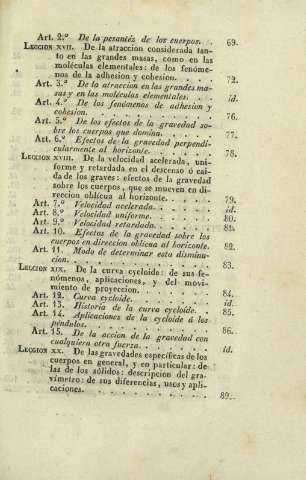 Art. 2.º De la pesantéz de los cuerpos. . 69.
LECCION XVII. De la atraccion considerada tan-
to en las grandes masas, como en las
moléculas elementales: de los fenóme-
nos de la adhesion y cohesion. . . . 72.
Art. 3.º De la atraccion en las grandes ma-
sas y en las moléculas elementales. . . id.
Art. 4.º De los fenómenos de adhesion y
cohesion. . . . . . . . 76.
Art. 5.º De los efectos de la gravedad so-
bre los cuerpos que domina. . . . . 77.
Art. 6.º Efectos de la gravedad perpendi-
cularmente al horizonte. . . . . . 78.
LECCION XVIII. De la velocidad acelerada, uni-
forme y retardada en el descenso ó cai-
da de los graves: efectos de la gravedad
sobre los cuerpos, que se mueven en di-
reccion oblícua al horizonte. . . . . 79.
Art. 7.º Velocidad acelerada. . . . . id.
Art. 8.º Velocidad uniforme. . . . . 80.
Art. 9.º Velocidad retardada. . . . .
Art. 10. Efectos de la gravedad sobre los
cuerpos en direccion oblícua al horizonte. 82.
Art. 11. Modo de determinar esta disminu-
cion. . . . . . . . . 83.
LECCION XIX. De la curva cycloide: de sus fe-
nómenos, aplicaciones, y del movi-
miento de proyeccion. . . . . . 84.
Art. 12. Curva cycloide. . . . . . id.
Art. 13. Historia de la curva cycloide. . 85.
Art. 14. Aplicaciones de la cycloide á los
péndolos. . . . . . . . 86.
Art. 15. De la accion de la gravedad con
cualquiera otra fuerza. . . . . . id.
LECCION XX. De las gravedades específicas de los
cuerpos en general, y en particular: de
las de los sólidos: descripcion del gra-
vímetro: de sus diferencias, usos y apli-
caciones. . . . . . . . 89.